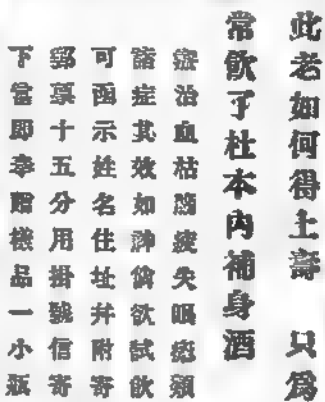 此老如何得上壽 只爲
常飲了杜本內補身酒
治血枯腦疲失眠頭
諸症其效如神倘欲試飲
可函示姓名住址并附寄
郵票十五分用掛號信寄
下當即奉贈樣品一小瓶